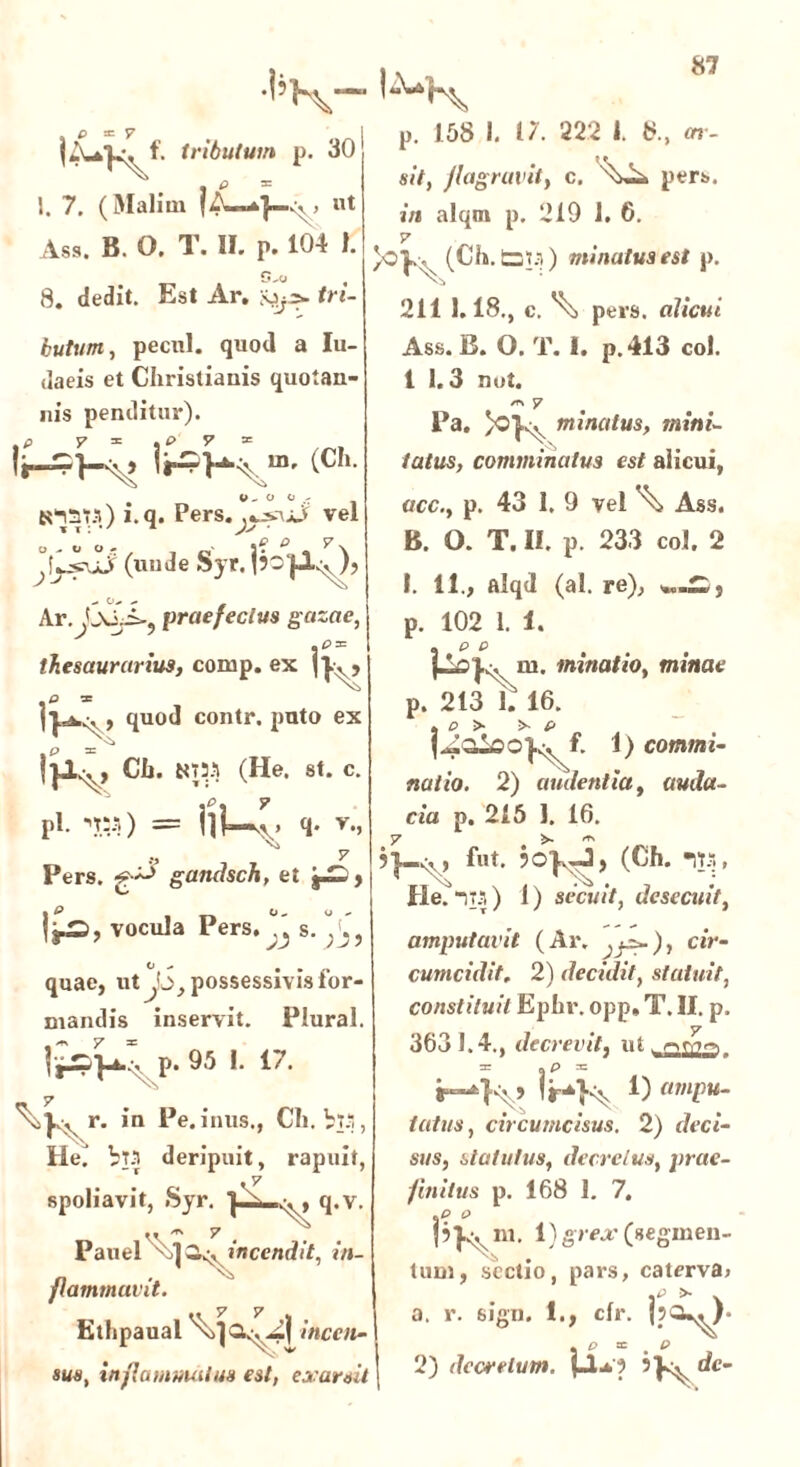 87
ܓܙܝܬܐ — ܓܙܪܐ.
ܓܙܝܬܐ f. tributum p. 30
l. 7. (Malim ܓܙܝܬܐ, ut
Ass. B. O. T. II. p. 104 l.
8. dedit. Est Ar. جزية tri-
butum, pecul. quod a Iu-
daeis et Christianis quotan-
nis penditur).
ܓܙܒܪܐ, ܓܝܙܒܪܐ m. (Ch.
גִזְבְּרָא) i. q. Pers. گنجور vel
گنجوار (unde Syr. ܓܢܙܘܪܐ),
Ar. praefectus gazae,
thesaurarius, comp. ex ܓܙܐ,
ܓܝܙܐ, quod contr. puto ex
ܓܢܙܐ, Ch. גִּנְזָא (He. st. c.
pl. גִּנְזֵי) = q. v.,
Pers. گنج gandsch, et ܒܪ,
ܒܪܐ, vocula Pers. ور s. وار,
quae, ut بار, possessivis for-
mandis inservit. Plural.
ܓܝܙܒܪܐ p. 95 l. 17.
ܓܙܠ r. in Pe. inus., Ch. גְּזַל,
He. גָּזַל deripuit, rapuit,
spoliavit, Syr. q. v.
Pauel ܓܘܙܠ incendit, in-
flammavit.
Ethpaual ܐܬܓܘܙܠ incen-
sus, inflammatus est, exarsit
p. 158 l. 17. 222 l. 8., ar-
sit, flagravit, c. ܥܠ pers.
in alqm p. 219 l. 6.
ܓܙܡ (Ch. גְּזַם) minatus est p.
211 l. 18., c. ܠ pers. alicui
Ass. B. O. T. I. p. 413 col.
1 l. 3 not.
Pa. ܓܙܡ minatus, mini-
tatus, comminatus est alicui,
acc., p. 43 l. 9 vel ܠ Ass.
B. O. T. II. p. 233 col. 2
l. 11., alqd (al. re), ܒ,
p. 102 l. 1.
ܓܙܡܐ m. minatio, minae
p. 213 l. 16.
ܓܙܘܡܘܬܐ f. 1) commi-
natio. 2) audentia, auda-
cia p. 215 l. 16.
ܓܙܪ, fut. ܢܓܙܘܪ, (Ch. גְּזַר,
He. גָּזַר) 1) secuit, desecuit,
amputavit (Ar. جزر), cir-
cumcidit. 2) decidit, statuit,
constituit Ephr. opp. T. II. p.
363 l. 4., decrevit, ut ܦܣܩ.
ܓܙܝܪ, ܓܙܝܪܐ 1) ampu-
tatus, circumcisus. 2) deci-
sus, statutus, decretus, prae-
finitus p. 168 l. 7.
ܓܙܪܐ m. 1) grex (segmen-
tum, sectio, pars, caterva,
a. r. sign. 1., cfr. ܓܘܕܐ).
2) decretum. ܓܙܪ ܕܝܢܐ de-